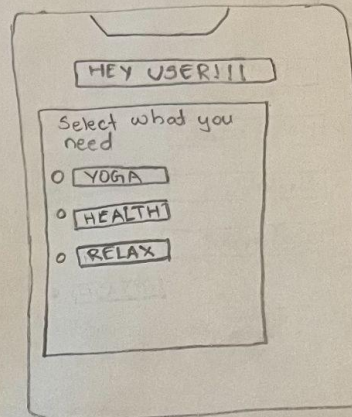 HEY USER!!!
Select what you
need
YOGA
HEALTH
RELAX